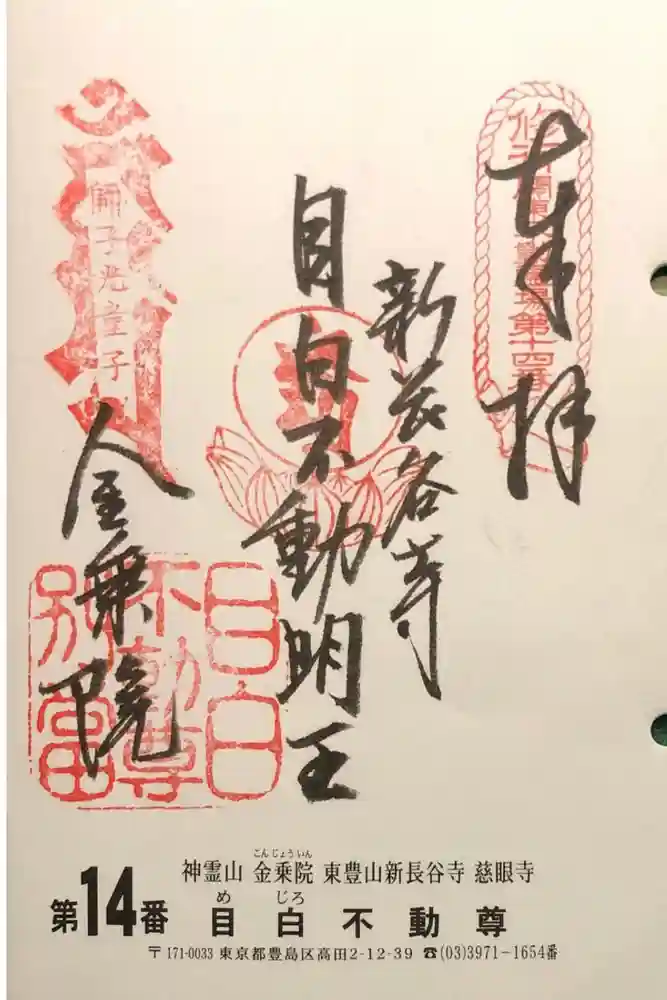 奉拝
修行 関東 霊場第十四番
新長谷寺
目白不動明王
金乗院
師子光童子
目白
不動尊
別當
神霊山 金乗院 東豊山新長谷寺 慈眼寺
こんじょういん
第14番 目白不動尊
め じろ
〒171-0033 東京都豊島区高田2-12-39 ☎(03)3971-1654番